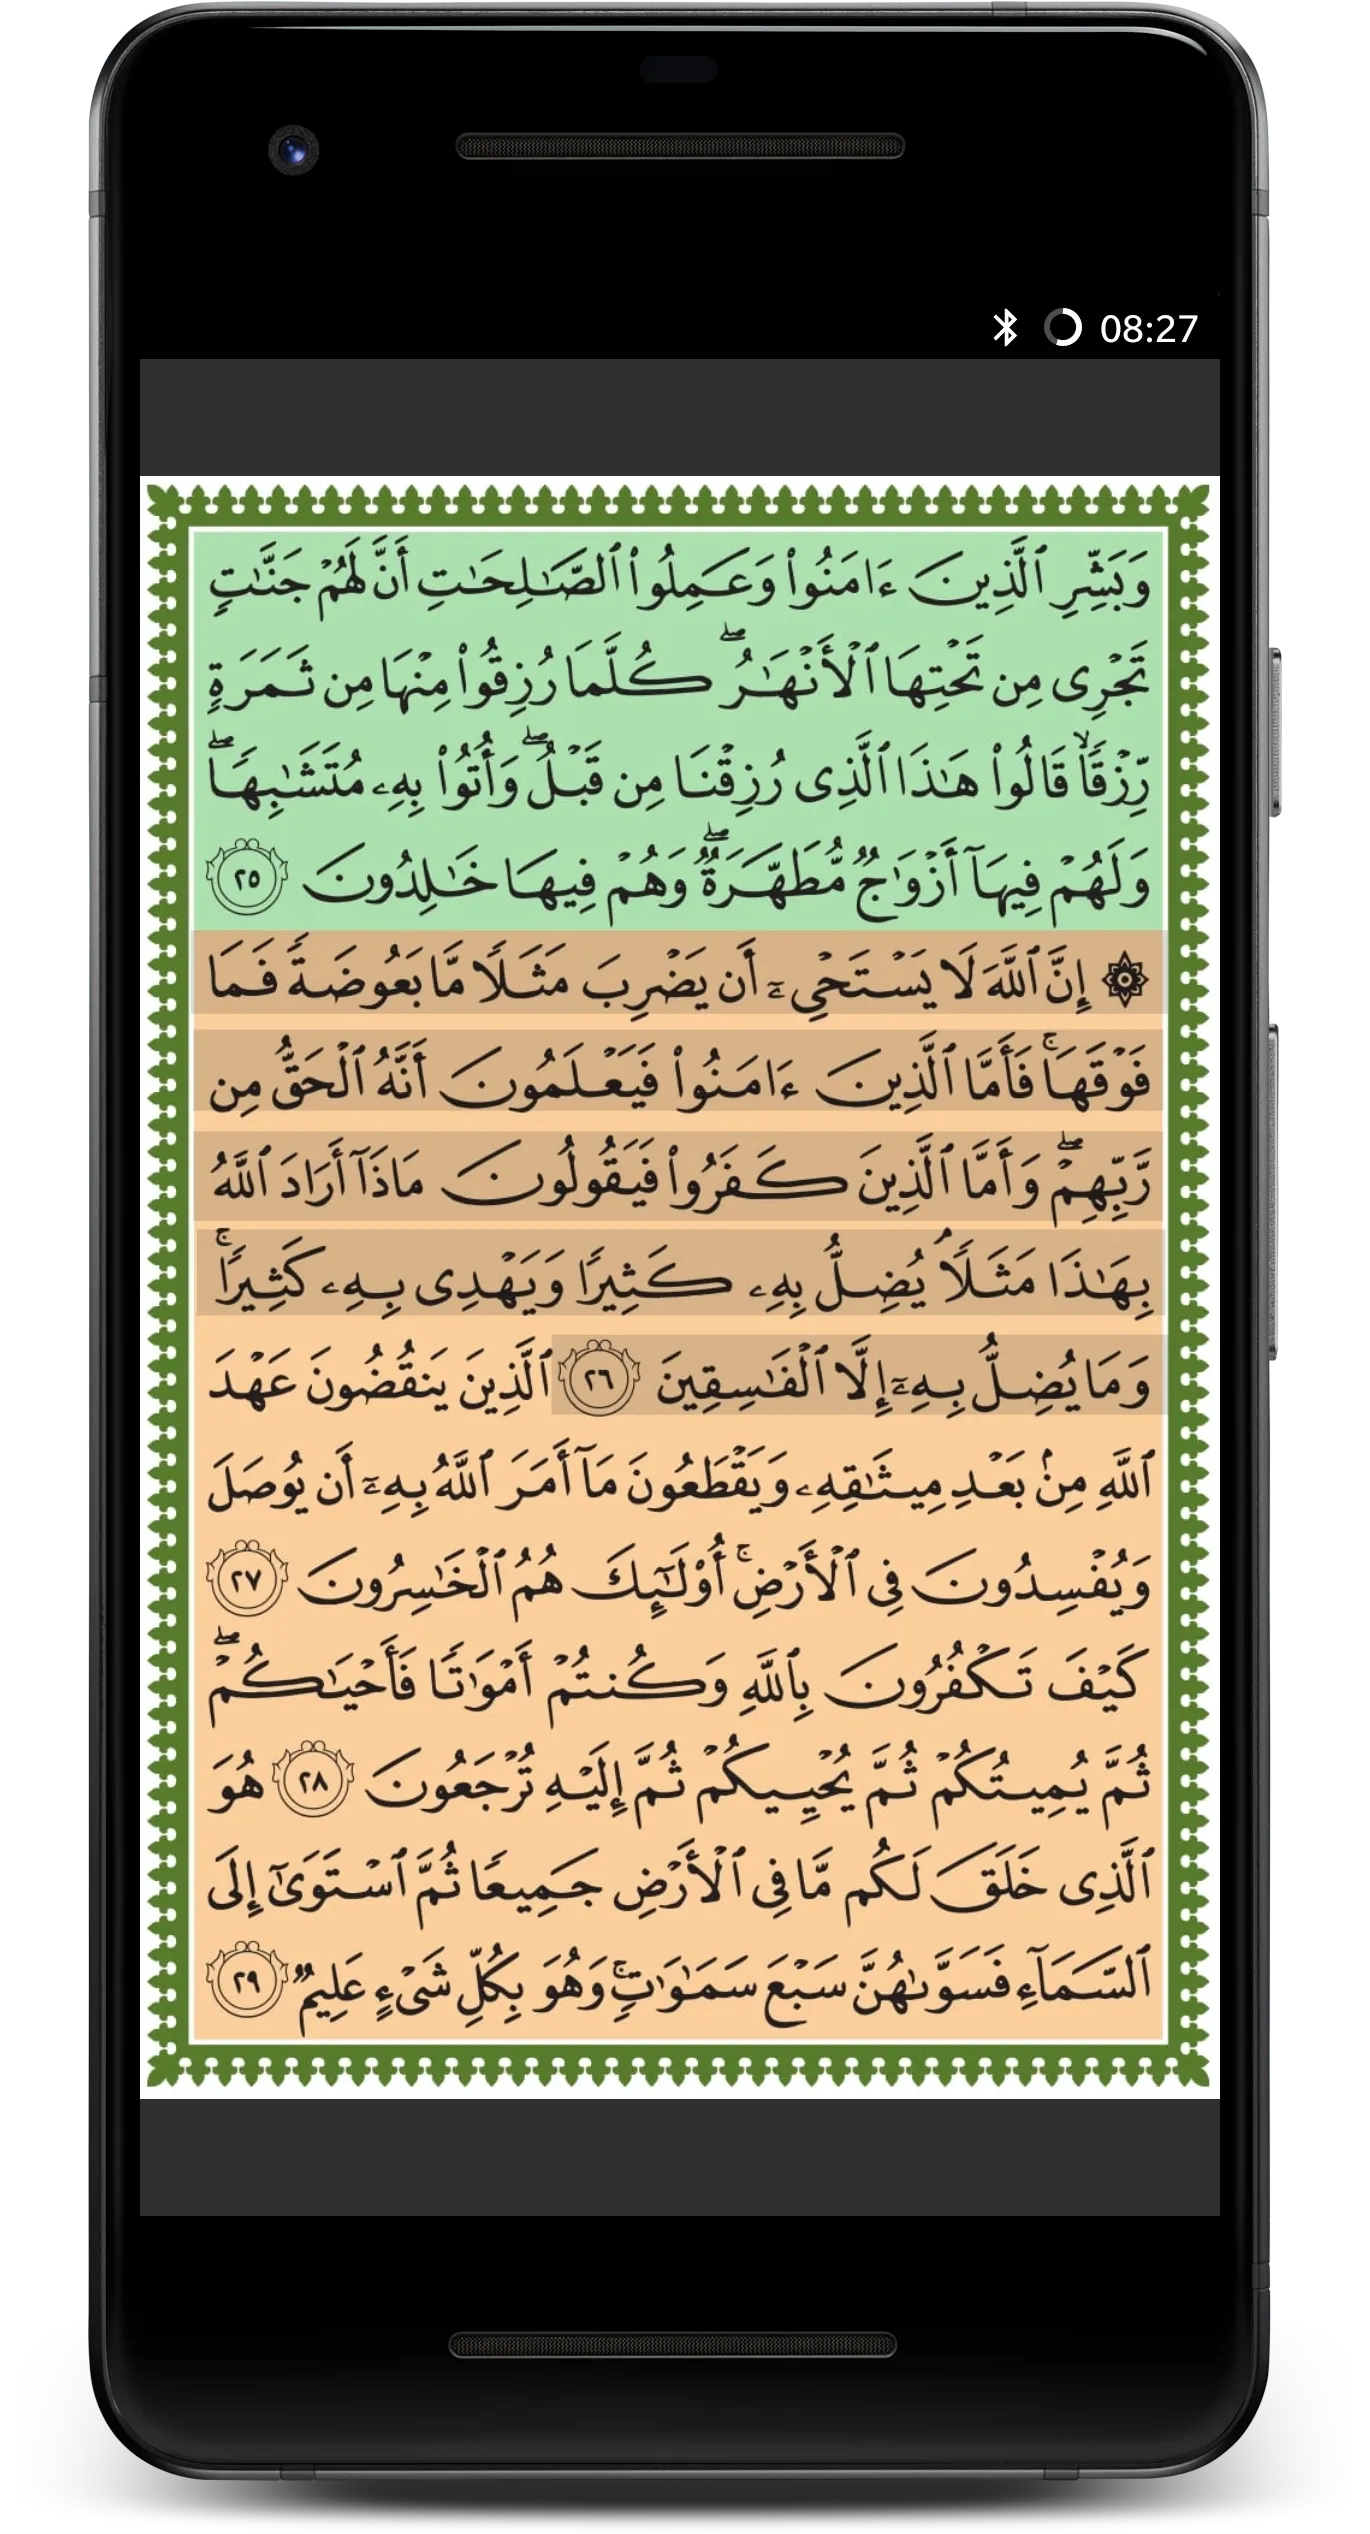 08:27
وَبَشِّرِ ٱلَّذِينَ ءَامَنُوا۟ وَعَمِلُوا۟ ٱلصَّـٰلِحَـٰتِ أَنَّ لَهُمْ جَنَّـٰتٍ
تَجْرِى مِن تَحْتِهَا ٱلْأَنْهَـٰرُ ۖ كُلَّمَا رُزِقُوا۟ مِنْهَا مِن ثَمَرَةٍ
رِّزْقًا ۙ قَالُوا۟ هَـٰذَا ٱلَّذِى رُزِقْنَا مِن قَبْلُ ۖ وَأُتُوا۟ بِهِۦ مُتَشَـٰبِهًا ۖ
وَلَهُمْ فِيهَآ أَزْوَٰجٌ مُّطَهَّرَةٌ ۖ وَهُمْ فِيهَا خَـٰلِدُونَ ٢٥
۞ إِنَّ ٱللَّهَ لَا يَسْتَحْىِۦٓ أَن يَضْرِبَ مَثَلًا مَّا بَعُوضَةً فَمَا
فَوْقَهَا ۚ فَأَمَّا ٱلَّذِينَ ءَامَنُوا۟ فَيَعْلَمُونَ أَنَّهُ ٱلْحَقُّ مِن
رَّبِّهِمْ ۖ وَأَمَّا ٱلَّذِينَ كَفَرُوا۟ فَيَقُولُونَ مَاذَآ أَرَادَ ٱللَّهُ
بِهَـٰذَا مَثَلًا ۘ يُضِلُّ بِهِۦ كَثِيرًا وَيَهْدِى بِهِۦ كَثِيرًا ۚ
وَمَا يُضِلُّ بِهِۦٓ إِلَّا ٱلْفَـٰسِقِينَ ٢٦ ٱلَّذِينَ يَنقُضُونَ عَهْدَ
ٱللَّهِ مِنۢ بَعْدِ مِيثَـٰقِهِۦ وَيَقْطَعُونَ مَآ أَمَرَ ٱللَّهُ بِهِۦٓ أَن يُوصَلَ
وَيُفْسِدُونَ فِى ٱلْأَرْضِ ۚ أُو۟لَـٰٓئِكَ هُمُ ٱلْخَـٰسِرُونَ ٢٧
كَيْفَ تَكْفُرُونَ بِٱللَّهِ وَكُنتُمْ أَمْوَٰتًا فَأَحْيَـٰكُمْ ۖ
ثُمَّ يُمِيتُكُمْ ثُمَّ يُحْيِيكُمْ ثُمَّ إِلَيْهِ تُرْجَعُونَ ٢٨ هُوَ
ٱلَّذِى خَلَقَ لَكُم مَّا فِى ٱلْأَرْضِ جَمِيعًا ثُمَّ ٱسْتَوَىٰٓ إِلَى
ٱلسَّمَآءِ فَسَوَّىٰهُنَّ سَبْعَ سَمَـٰوَٰتٍ ۚ وَهُوَ بِكُلِّ شَىْءٍ عَلِيمٌ ٢٩